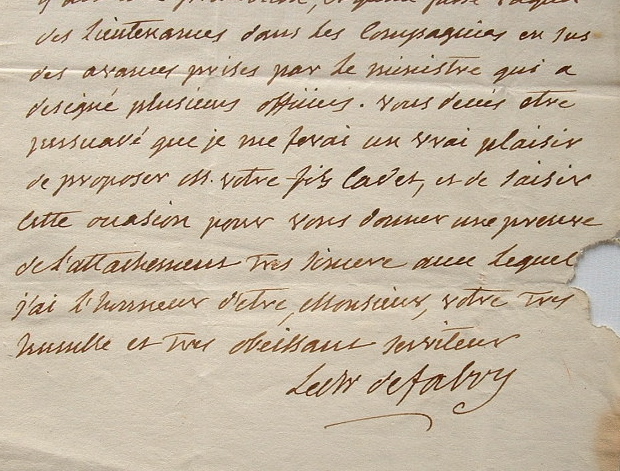 des lieutenances dans les Compagnies en sus
des avances prises par le ministre qui a
designé plusieurs officiers. vous devés etre
persuadé que je me ferai un vrai plaisir
de proposer M. votre fils Cadet, et de saisir
cette ocasion pour vous donner une preuve
de l'attachement tres sincere avec lequel
j'ai l'honneur d'etre, Monsieur, votre tres
humble et tres obeissant serviteur
Le chr de fabry